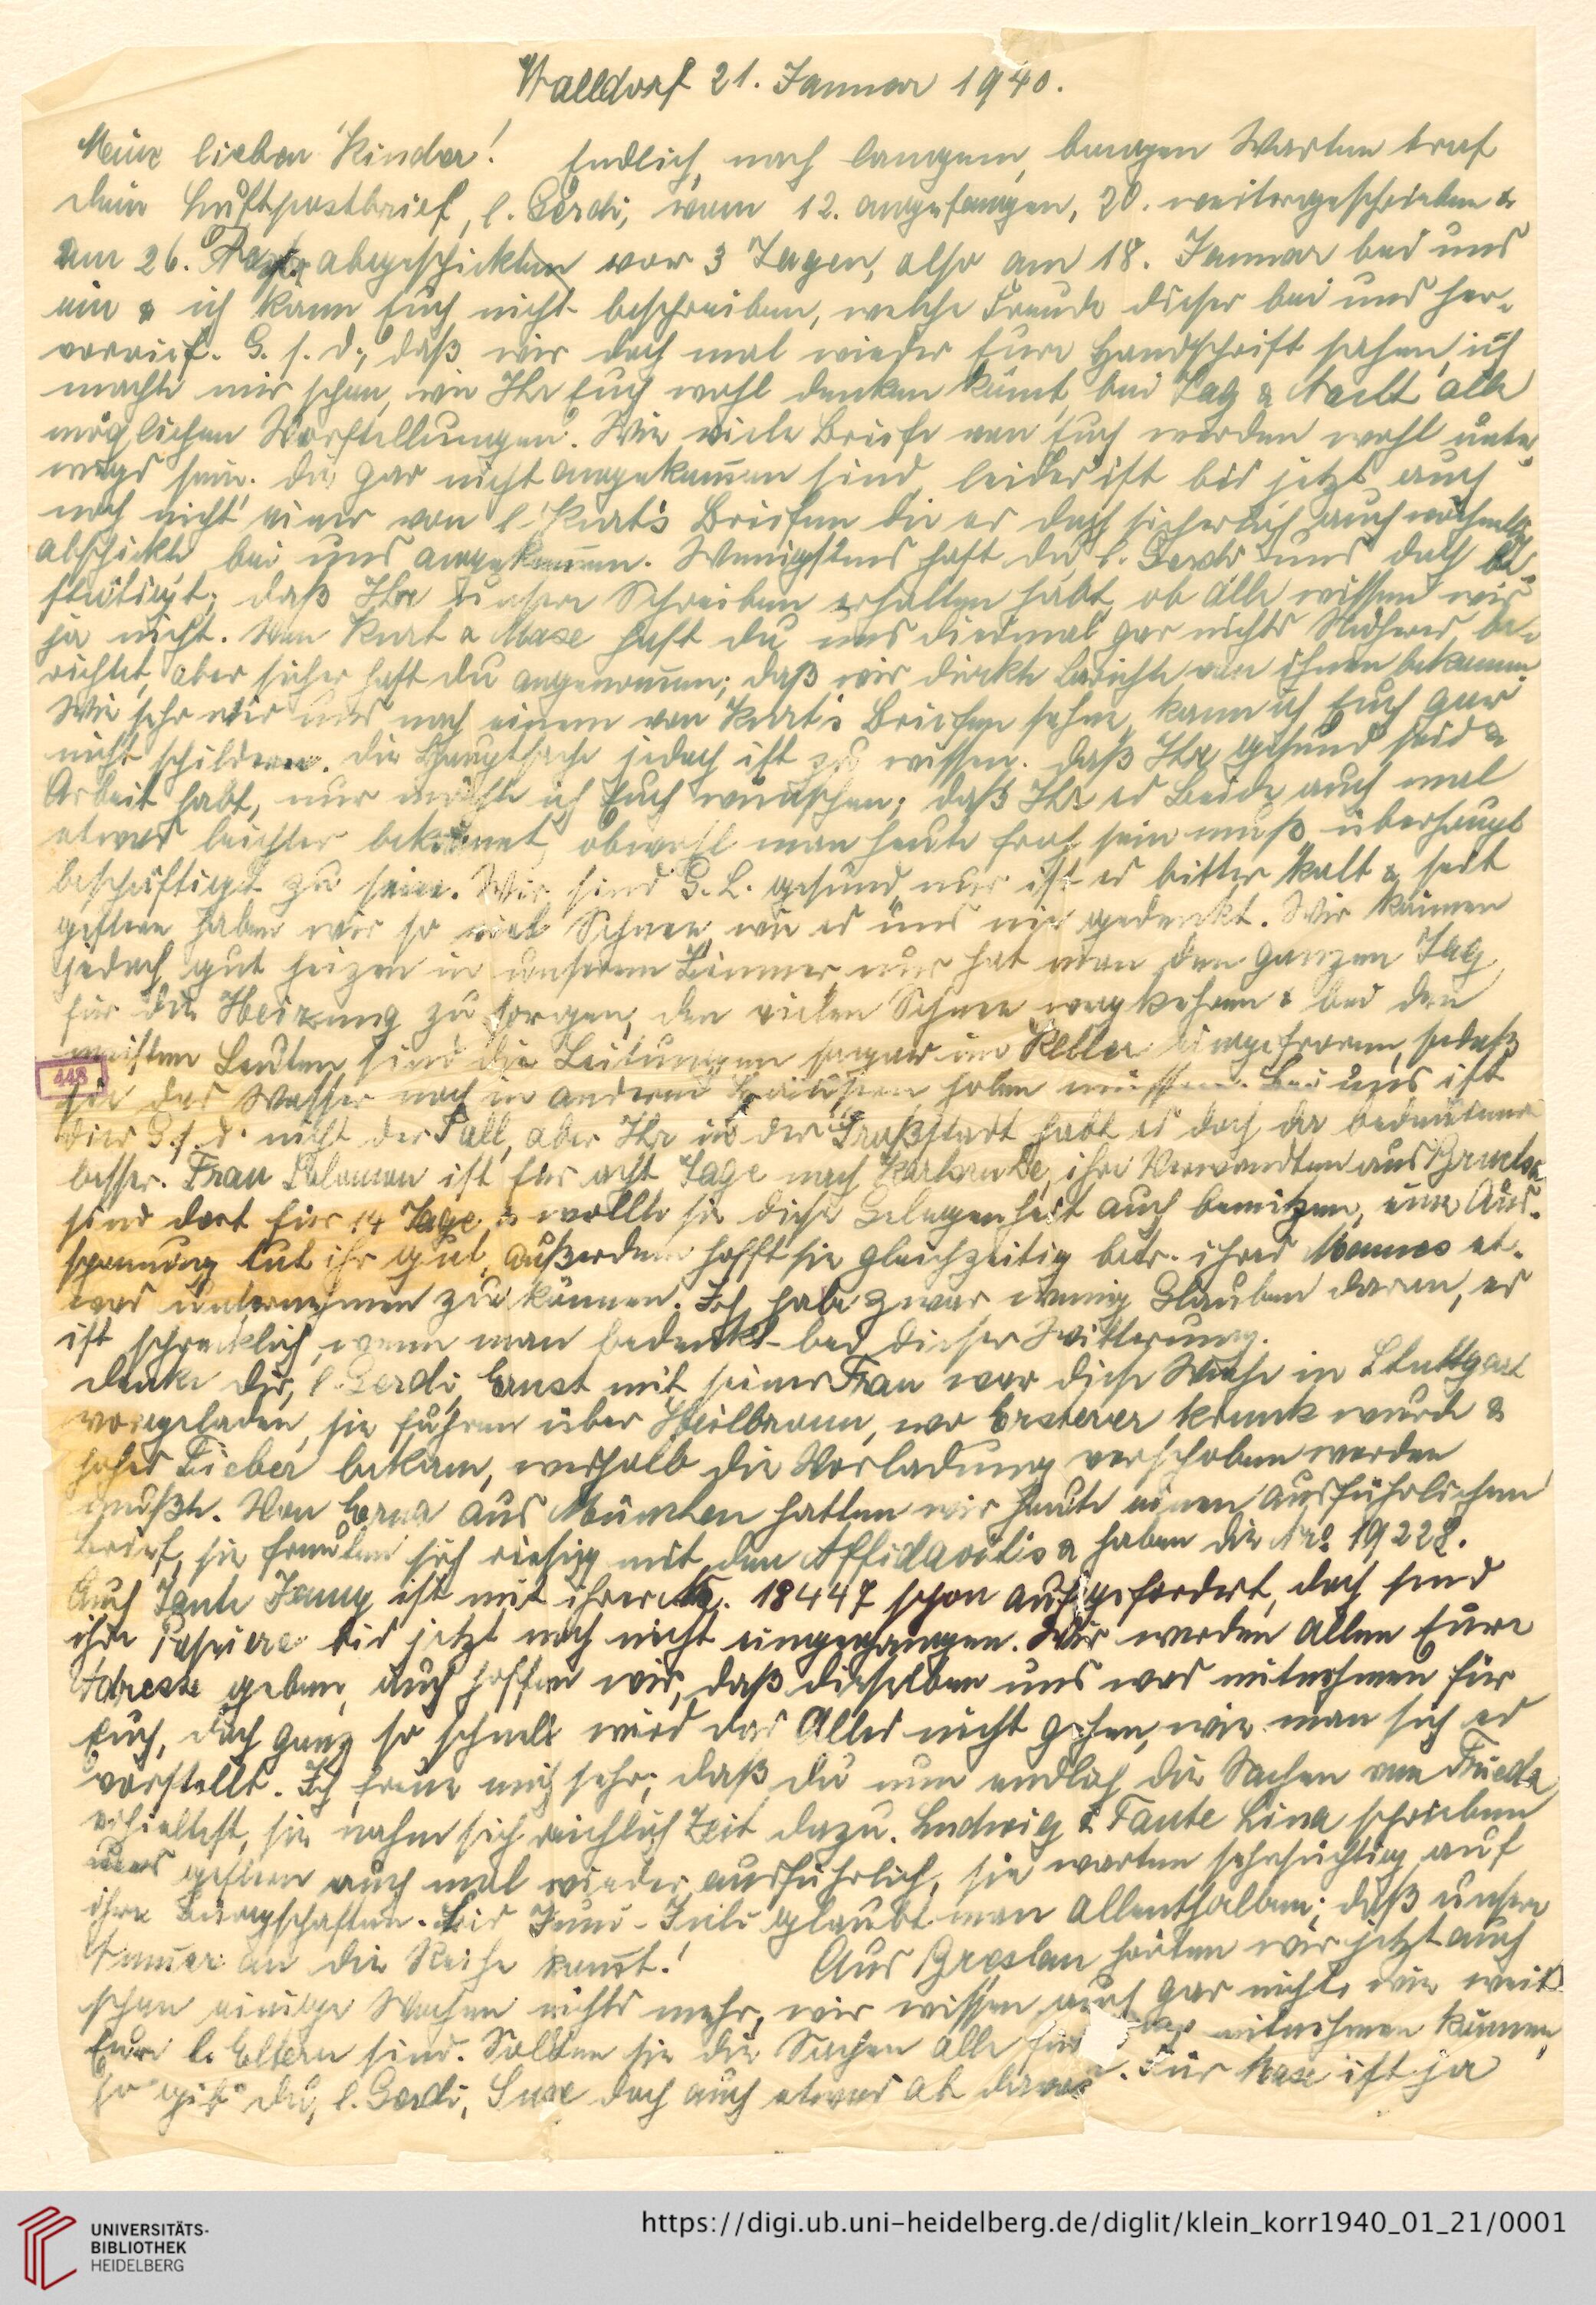 Walldorf 21. Januar 1940.
Meine lieben Kinder! Endlich, nach langem, bangen Warten traf
dein Luftpostbrief, l. Gerdi, vom 12. angefangen, 20. weitergeschrieben &
am 26. abgeschickten vor 3 Tagen, also am 18. Januar bei uns
ein & ich kann Euch nicht beschreiben, welche Freude dieser bei uns her-
vorrief. G. s. d., daß wir doch mal wieder Eure Handschrift sahen, ich
machte mir schon, wie Ihr Euch wohl denken könnt, bei Tag & Nacht alle
möglichen Vorstellungen. Wie viele Briefe von Euch werden wohl unter-
wegs sein, die gar nicht angekommen sind, leider ist bis jetzt auch
noch nicht einer von l. Kurt's Briefen die er doch sicherlich auch
abschickte bei uns angekommen. Wenigstens hast du, l. Gerdi uns doch be-
stätigt, daß Ihr unsere Schreiben erhalten habt, ob alle wissen wir
ja nicht. Von Kurt & Mase hast du uns diesmal gar nichts Näheres be-
richtet, aber sicher hast du angenommen, daß wir direkte Berichte von ihnen bekommen.
Wie sehr wir uns nach einem von Kurt's Briefen sehne, kann ich Euch gar
nicht schildern. Die Hauptsache jedoch ist zu wissen, daß Ihr gesund seid &
Arbeit habt, nur möchte ich Euch wünschen, daß Ihr es Beide auch mal
etwas leichter bekommt, obwohl man heute froh sein muß überhaupt
beschäftigt zu sein. Wir sind G. L. gesund, nur ist es bitter kalt & seit
gestern haben wir so viel Schnee, wie es uns nie gedenkt. Wir können
jedoch gut heizen in unserem Zimmer, nur hat man den ganzen Tag
für die Heizung zu sorgen, den vielen Schnee wegkehren & bei den
meisten Leuten sind die Leitungen sogar im Keller eingefroren, sodaß
sie das Wasser noch in anderen Häusern holen müssen. Bei uns ist
dies G. s. d. nicht der Fall, aber Ihr in der Großstadt habt es doch da bedeutend
besser. Frau Salomon ist für acht Tage nach Karlsruhe, ihre Verwandten aus
sind dort für 14 Tage & wollte sie diese Gelegenheit auch benützen, eine Aus-
spannung tut ihr gut, außerdem hofft sie gleichzeitig betr. ihres Mannes et-
was unternehmen zu können. Ich habe zwar wenig Glauben daran, es
ist schrecklich, wenn man bedenkt bei dieser Witterung.
Denke dir, l. Gerdi, Ernst mit seiner Frau war diese Woche in Stuttgart
vorgeladen, sie fuhren über Heilbronn, wo Ersterer krank wurde &
hohes Fieber bekam, weshalb die Vorladung verschoben werden
mußte. Von Erna aus München hatten wir heute einen ausführlichen
Brief, sie freuten sich riesig mit den Affidavits & haben die Nro 19228.
Auch Tante Jenny ist mit ihrer No. 18447 schon aufgefordert, doch sind
ihre Papiere bis jetzt noch nicht eingegangen. Wir werden allen Eure
Adresse geben, auch hoffen wir, daß dieselben uns was mitnehmen für
Euch, doch ganz so schnell wird das Alles nicht gehen, wie man sich es
vorstellt. Ich freue mich sehr, daß du nun endlich die Sachen von Frieda
erhieltest, sie nahm sich reichlich Zeit dazu. Ludwig & Tante Lina schrieben
uns gestern auch mal wieder ausführlich, sie warten sehnsüchtig auf
ihre Bürgschaften. Bis Juni-Juli glaubt man allenthalben, daß unsere
Nummer an die Reihe kommt! Aus Breslau hörten wir jetzt auch
schon einige Wochen nichts mehr, wir wissen auch gar nicht, wie weit
Eure l. Eltern sind. Sollten sie die Sachen alle für mitnehmen können,
so gib du, l. Gerdi, Suse doch auch etwas ab davon. Für Mase ist ja
448
UNIVERSITÄTS-
BIBLIOTHEK
HEIDELBERG
https://digi.ub.uni-heidelberg.de/diglit/klein_korr1940_01_21/0001